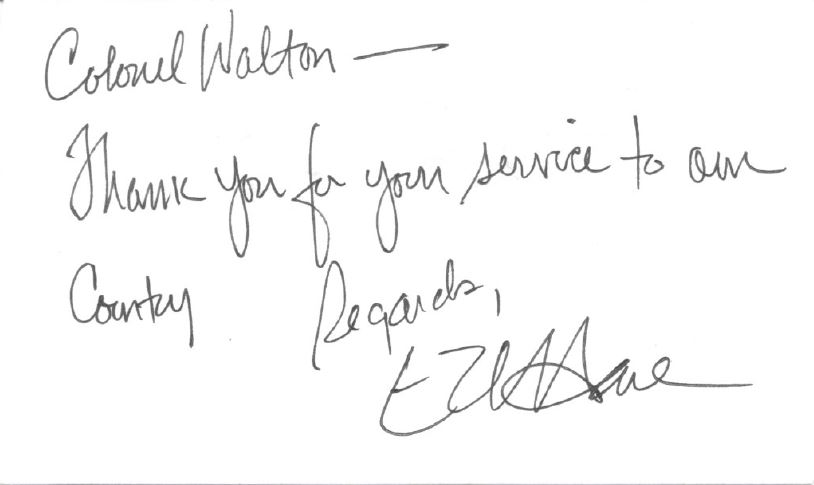 Colonel Walton —
Thank you for your service to our
Country Regards,